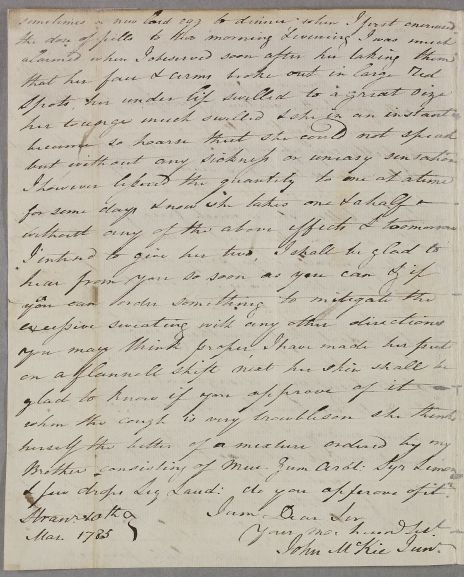 sometimes a new laid egg to dinner when I first encreased
the dose of pills to two morning & evening I was much
alarmed when I observed soon after her taking them
that her face & arms broke out in large Red
spots her under lip swelled to a great size
her tounge much swelled & she in an instant
became so hoarse that she could not speak
but without any sickness or uneasy sensation
I however lessened the quantity to one at a time
for some days & now she takes one & a half
without any of the above effects & tomorrow
I intend to give her two, I shall be glad to
hear from you so soon as you can & if
you can order something to mitigate the
excessive sweating with any other directions
you may think proper I have made her put
on a flannell shift next her skin shall be
glad to know if you approve of it
when the cough is very troublesom she thinks
herself the better of a mixture ordered by my
Brother consisting of Muc. Gum Arab: Syr Limon
& few drops Liq Laud: do you approve of it
Stranr 20th
I am Dear Sir
Mar. 1785
Your most huml Sert
John McKie Junr.